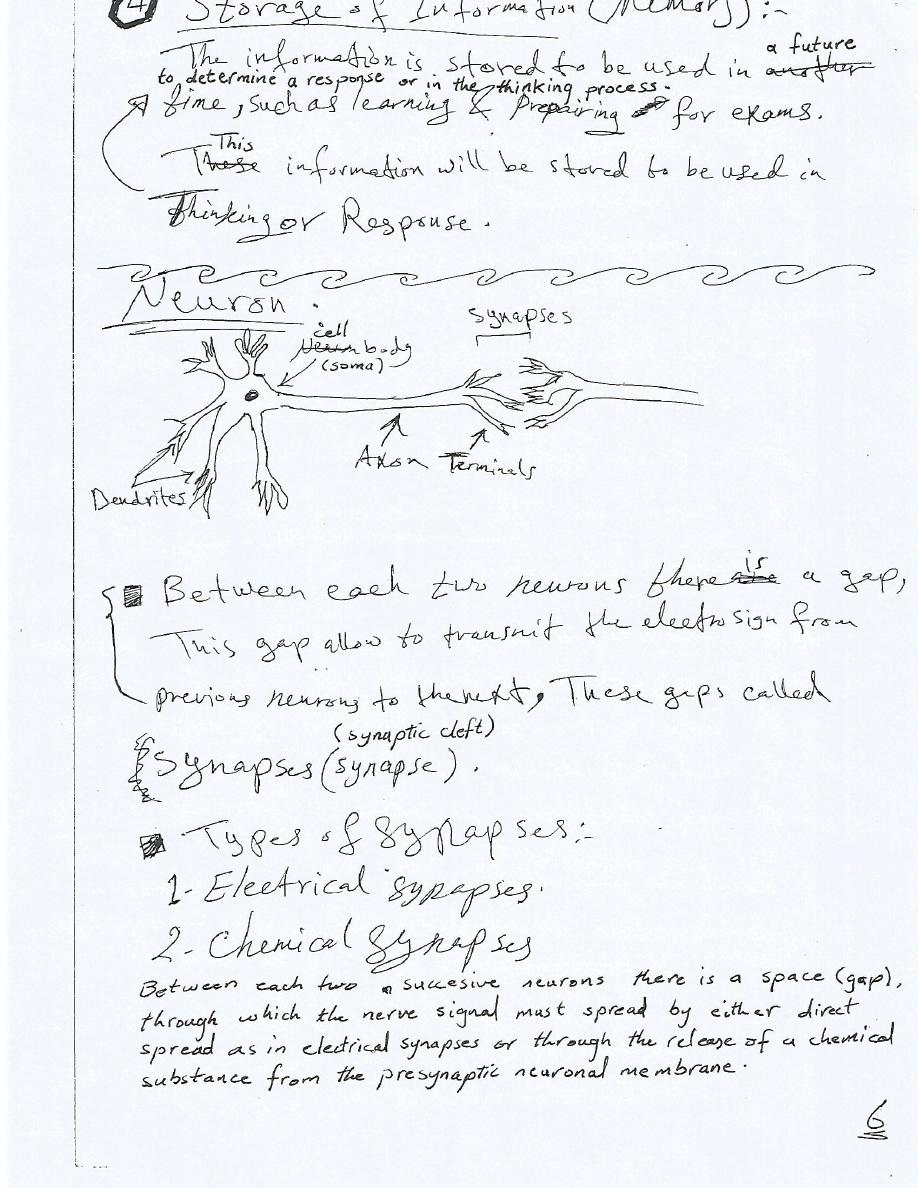 4 Storage of Information (Memory):-
The information is stored to be used in another a future
to determine a response or in the thinking process.
time, such as learning & Prepairing for exams.
This
These information will be stored to be used in
Thinking or Response.
Neuron.
synapses
cell
body
(soma)
Axon Terminals
Dendrites
is
Between each two neurons there are a gap,
This gap allow to transmit the electrosign from
previous neurons to the next, These gaps called
(synaptic cleft)
Synapses (synapse).
Types of Synapses:-
1- Electrical synapses.
2- Chemical synapses
Between each two succesive neurons there is a space (gap),
through which the nerve signal must spread by either direct
spread as in electrical synapses or through the release of a chemical
substance from the presynaptic neuronal membrane.
6